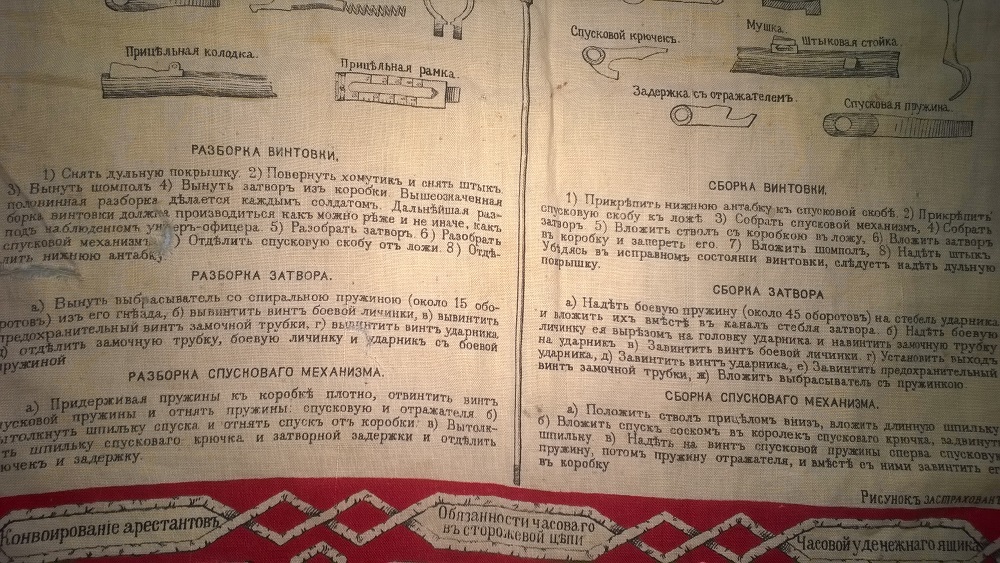 Прицѣльная колодка.
Прицѣльная рамка.
РАЗБОРКА ВИНТОВКИ.
1) Снять дульную покрышку. 2) Повернуть хомутикъ и снять штыкъ
3) Вынуть шомполъ 4) Вынуть затворъ изъ коробки. Вышеозначенная
половинная разборка дѣлается каждымъ солдатомъ. Дальнѣйшая раз-
борка винтовки должна производиться какъ можно рѣже и не иначе, какъ
подъ наблюденіемъ унтеръ-офицера. 5) Разобрать затворъ. 6) Разобрать
спусковой механизмъ. 7) Отдѣлить спусковую скобу отъ ложи. 8) Отдѣ-
лить нижнюю антабку.
РАЗБОРКА ЗАТВОРА.
а) Вынуть выбрасыватель со спиральною пружиною (около 15 обо-
ротовъ) изъ его гнѣзда, б) вывинтить винтъ боевой личинки, в) вывинтить
предохранительный винтъ замочной трубки, г) вывинтить винтъ ударника
д) отдѣлить замочную трубку, боевую личинку и ударникъ съ боевой
пружиной
РАЗБОРКА СПУСКОВАГО МЕХАНИЗМА.
а) Придерживая пружины къ коробкѣ плотно, отвинтить винтъ
спусковой пружины и отнять пружины: спусковую и отражателя б)
вытолкнуть шпильку спуска и отнять спускъ отъ коробки. в) Вытолк-
нуть шпильку спусковаго крючка и затворной задержки и отдѣлить
крючекъ и задержку.
Спусковой крючекъ.
Мушка.
Штыковая стойка.
Задержка съ отражателемъ.
Спусковая пружина.
СБОРКА ВИНТОВКИ.
1) Прикрѣпить нижнюю антабку къ спусковой скобѣ. 2) Прикрѣпить
спусковую скобу къ ложѣ 3) Собрать спусковой механизмъ, 4) Собрать
затворъ. 5) Вложить стволъ съ коробкою въ ложу, 6) Вложить затворъ
въ коробку и запереть его. 7) Вложить шомполъ, 8) Надѣть штыкъ
Убѣдясь въ исправномъ состояніи винтовки, слѣдуетъ надѣть дульную
покрышку.
СБОРКА ЗАТВОРА
а) Надѣть боевую пружину (около 45 оборотовъ) на стебель ударника
и вложить ихъ вмѣстѣ въ каналъ стебля затвора. б) Надѣть боевую
личинку ея вырѣзомъ на головку ударника и навинтить замочную трубку
на ударникъ в) Завинтить винтъ боевой личинки. г) Установить выходъ
ударника, д) Завинтить винтъ ударника, е) Завинтить предохранительный
винтъ замочной трубки, ж) Вложить выбрасыватель съ пружинкою
СБОРКА СПУСКОВАГО МЕХАНИЗМА.
а) Положить стволъ прицѣломъ внизъ, вложить длинную шпильку
б) Вложить спускъ соскомъ въ королекъ спусковаго крючка, задвинуть
шпильку в) Надѣть на винтъ спусковой пружины сперва спусковую
пружину, потомъ пружину отражателя, и вмѣстѣ съ ними завинтить его
въ коробку
Рисунокъ застрахованъ
Конвоированіе арестантовъ.
Обязанности часоваго
въ сторожевой цѣпи
Часовой у денежнаго ящика